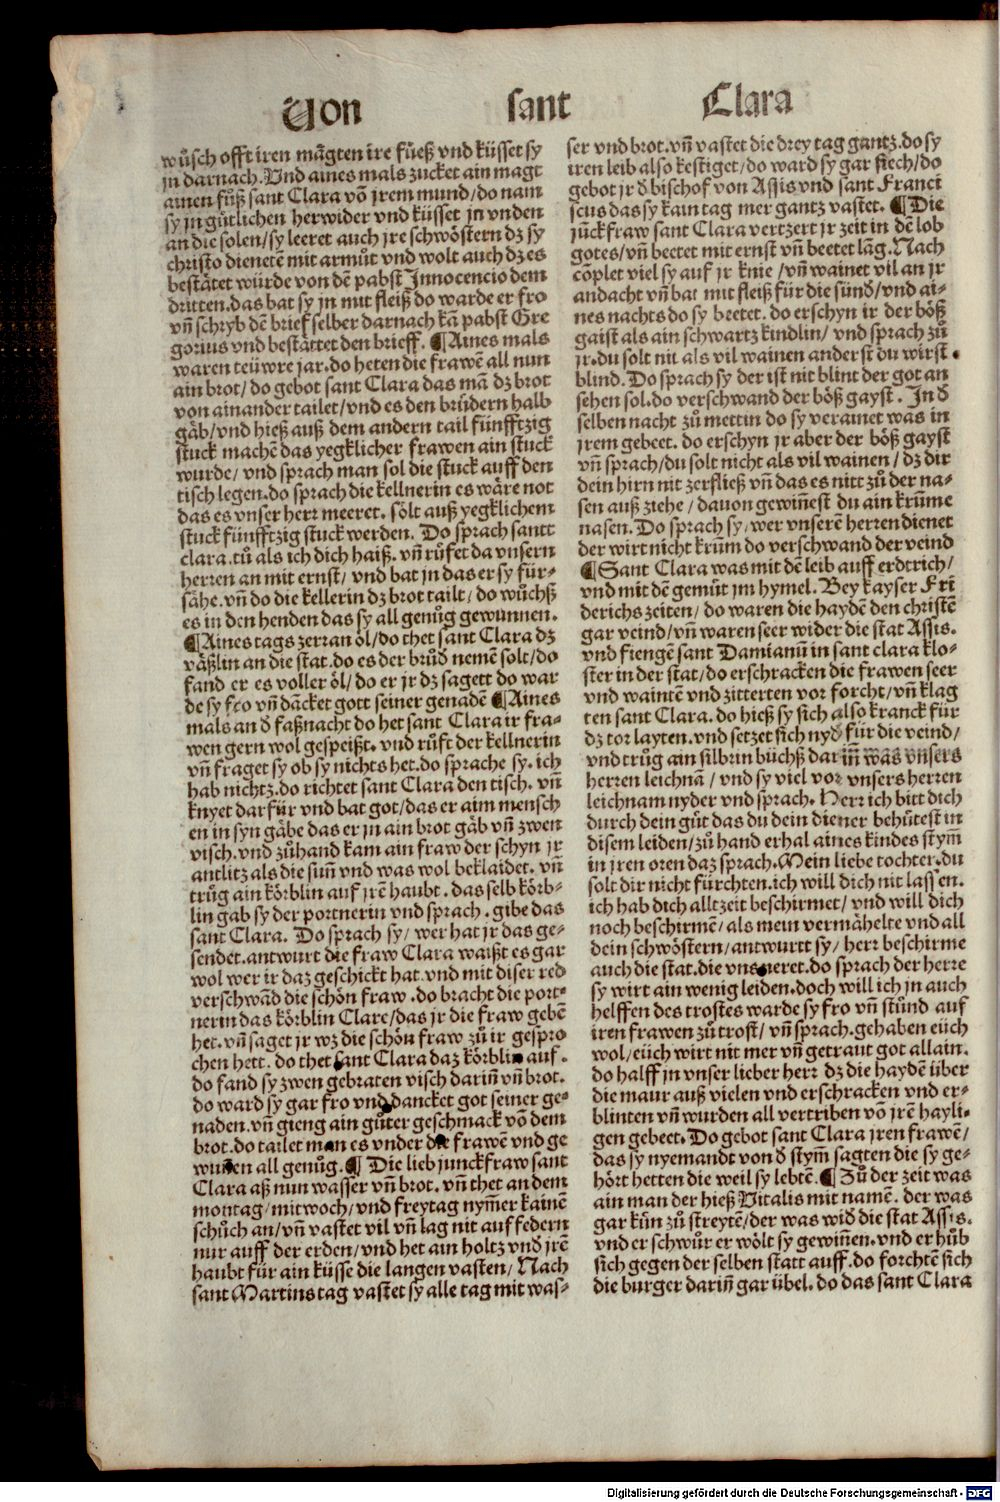 Von sant Clara
wůsch offt iren mägten ire füeß vnd küsset sy
jn darnach. Vnd aines mals zucket ain magt
ainen fůß sant Clara vō jrem mund/do nam
sy jn gütlichen herwider vnd küsset jn vnden
an die solen/sy leeret auch jre schwöstern dz sy
christo dienetē mit armůt vnd wolt auch dz es
bestätet würde von dē pabst Innocencio dem
dritten.das bat sy jn mit fleiß do warde er fro
vñ schryb dē brief selber darnach kā pabst Gre
gorius vnd bestättet den brieff. ¶Aines mals
waren teüwre jar.do heten die frawē all nun
ain brot/do gebot sant Clara das mā dz brot
von ainander tailet/vnd es den brüdern halb
gäb/vnd hieß auß dem andern tail fünfftzig
stuck machē das yegklicher frawen ain stuck
wurde/ vnd sprach man sol die stuck auff den
tisch legen.do sprach die kellnerin es wäre not
das es vnser herr meeret. sölt auß yegklichem
stuck fünfftzig stuck werden. Do sprach santt
clara.tů als ich dich haiß. vñ růfet da vnsern
herren an mit ernst/ vnd bat jn das er sy für-
sähe.vñ do die kellerin dz brot tailt/ do wůchß
es in den henden das sy all genůg gewunnen.
¶Aines tags zerran öl/do thet sant Clara dz
väßlin an die stat.do es der brůd nemē solt/do
fand er es voller öl/ do er jr dz sagett do war
de sy fro vñ dācket gott seiner genadē ¶Aines
mals an d faßnacht do het sant Clara ir fra-
wen gern wol gespeißt. vnd růft der kellnerin
vñ fraget sy ob sy nichts het.do sprache sy. ich
hab nichtz.do richtet sant Clara den tisch. vñ
knyet darfür vnd bat got/das er aim mensch
en in syn gäbe das er jn ain brot gäb vñ zwen
visch.vnd zůhand kam ain fraw der schyn jr
antlitz als die suñ vnd was wol beklaidet. vñ
trůg ain körblin auf jrē haubt. das selb körb-
lin gab sy der portnerin vnd sprach. gibe das
sant Clara. Do sprach sy/ wer hat jr das ge-
sendet.antwurt die fraw Clara waißt es gar
wol wer ir daz geschickt hat.vnd mit diser red
verschwād die schön fraw .do bracht die port-
nerin das körblin Clare/das jr die fraw gebē
het.vñ saget jr wz die schön fraw zů ir gespro
chen hett. do thet sant Clara daz körblin auf.
do fand sy zwen gebraten visch dariñ vñ brot.
do ward sy gar fro vnd dancket got seiner ge-
naden.vñ gieng ain gůter geschmack vō dem
brot.do tailet man es vnder die frawē vnd ge
wunnen all genůg.¶ Die lieb junckfraw sant
Clara aß nun wasser vñ brot. vñ thet an dem
montag/mitwoch/vnd freytag nym̄er kainē
schůch an/vñ vastet vil vñ lag nit auf federn
nur auff der erden/vnd het ain holtz vnd jrē
haubt für ain küsse die langen vasten/ Nach
sant Martins tag vastet sy alle tag mit was-
ser vnd brot.vñ vastet die drey tag gantz.do sy
iren leib also kestiget/do ward sy gar siech/do
gebot jr d bischof von Assis vnd sant Franci
scus das sy kain tag mer gantz vastet. ¶Die
jūckfraw sant Clara vertzert jr zeit in dē lob
gotes/vñ beetet mit ernst vñ beetet lāg.Nach
coplet viel sy auf jr knie /vñ wainet vil an jr
andacht vñ bat mit fleiß für die sünd/vnd ai-
nes nachts do sy beetet. do erschyn ir der böß
gaist als ain schwartz kindlin/ vnd sprach zů
jr.du solt nit als vil wainen anderst du wirst
blind.Do sprach sy der ist nit blint der got an
sehen sol.do verschwand der böß gayst. In d
selben nacht zů mettin do sy verainet was in
jrem gebeet. do erschyn jr aber der böß gayst
vñ sprach/du solt nicht als vil wainen/ dz dir
dein hirn nit zerfließ vñ das es nitt zů der na-
sen auß ziehe / dauon gewiñest du ain krūme
nasen.Do sprach sy/wer vnserē herren dienet
der wirt nicht krūm do verschwand der veind
¶Sant Clara was mit dē leib auff erdtrich/
vnd mit dē gemüt jm hymel. Bey kayser Fri
derichs zeiten/ do waren die haydē den christē
gar veind/vñ waren seer wider die stat Assis.
vnd fiengē sant Damianū in sant clara klo-
ster in der stat/do erschracken die frawen seer
vnd waintē vnd zitterten vor forcht/vñ klag
ten sant Clara. do hieß sy sich also kranck für
dz tor layten.vnd setzet sich nyd für die veind/
vnd trůg ain silbrin büchß dariñ was vnsers
herren leichnā / vnd sy viel vor vnsers herren
leichnam nyder vnd sprach. Herr ich bitt dich
durch dein güt das du dein diener behütest in
disem leiden/zů hand erhal aines kindes stym̄
in jren oren daz sprach.Mein liebe tochter.du
solt dir nicht fürchten.ich will dich nit lassen.
ich hab dich alltzeit beschirmet/ vnd will dich
noch beschirmē/als mein vermähelte vnd all
dein schwöstern/antwurtt sy/ herr beschirme
auch die stat.die vns neret.do sprach der herre
sy wirt ain wenig leiden.doch will ich jn auch
helffen des trostes warde sy fro vñ stůnd auf
iren frawen zů trost/ vñ sprach.gehaben eüch
wol/eüch wirt nit mer vñ getraut got allain.
do halff jn vnser lieber herr dz die haydē über
die maur auß vielen vnd erschracken vnd er-
blinten vñ wurden all vertriben vō jrē hayli-
gen gebeet.Do gebot sant Clara jren frawē/
das sy nyemandt von d stym̄ sagten die sy ge-
hört hetten die weil sy lebtē.¶ Zů der zeit was
ain man der hieß Vitalis mit namē. der was
gar kün zů streytē/der was wid die stat Assis.
vnd er schwůr er wölt sy gewiñen.vnd er hůb
sich gegen der selben statt auff.do forchtē sich
die burger dariñ gar übel. do das sant Clara
Digitalisierung gefördert durch die Deutsche Forschungsgemeinschaft - DFG